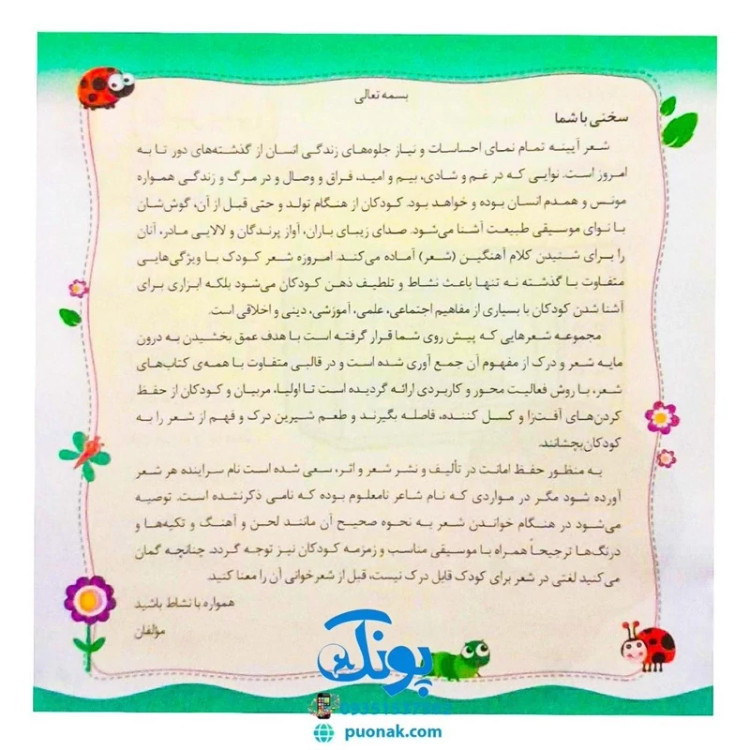 بسمه تعالی
سخنی با شما
شعر آیینه تمام نمای احساسات و نیاز جلوه‌های زندگی انسان از گذشته‌های دور تا به
امروز است. نوایی که در غم و شادی، بیم و امید، فراق و وصال و در مرگ و زندگی همواره
مونس و همدم انسان بوده و خواهد بود. کودکان از هنگام تولد و حتی قبل از آن، گوش‌شان
با نوای موسیقی طبیعت آشنا می‌شود. صدای زیبای باران، آواز پرندگان و لالایی مادر، آنان
را برای شنیدن کلام آهنگین (شعر) آماده می‌کند. امروزه شعر کودک با ویژگی‌هایی
متفاوت با گذشته نه تنها باعث نشاط و تلطیف ذهن کودکان می‌شود بلکه ابزاری برای
آشنا شدن کودکان با بسیاری از مفاهیم اجتماعی، علمی، آموزشی، دینی و اخلاقی است.
مجموعه شعرهایی که پیش روی شما قرار گرفته است با هدف عمق بخشیدن به درون
مایه شعر و درک از مفهوم آن جمع آوری شده است و در قالبی متفاوت با همه‌ی کتاب‌های
شعر، با روش فعالیت محور و کاربردی ارائه گردیده است تا اولیا، مربیان و کودکان از حفظ
کردن‌های آفت‌زا و کسل کننده، فاصله بگیرند و طعم شیرین درک و فهم از شعر را به
کودکان بچشانند.
به منظور حفظ امانت در تألیف و نشر شعر و اثر، سعی شده است نام سراینده هر شعر
آورده شود مگر در مواردی که نام شاعر نامعلوم بوده که نامی ذکر نشده است. توصیه
می‌شود در هنگام خواندن شعر به نحوه صحیح آن مانند لحن و آهنگ و تکیه‌ها و
درنگ‌ها ترجیحاً همراه با موسیقی مناسب و زمزمه کودکان نیز توجه گردد. چنانچه گمان
می‌کنید لغتی در شعر برای کودک قابل درک نیست، قبل از شعرخوانی آن را معنا کنید.
همواره با نشاط باشید
مؤلفان
پونک
puonak.com